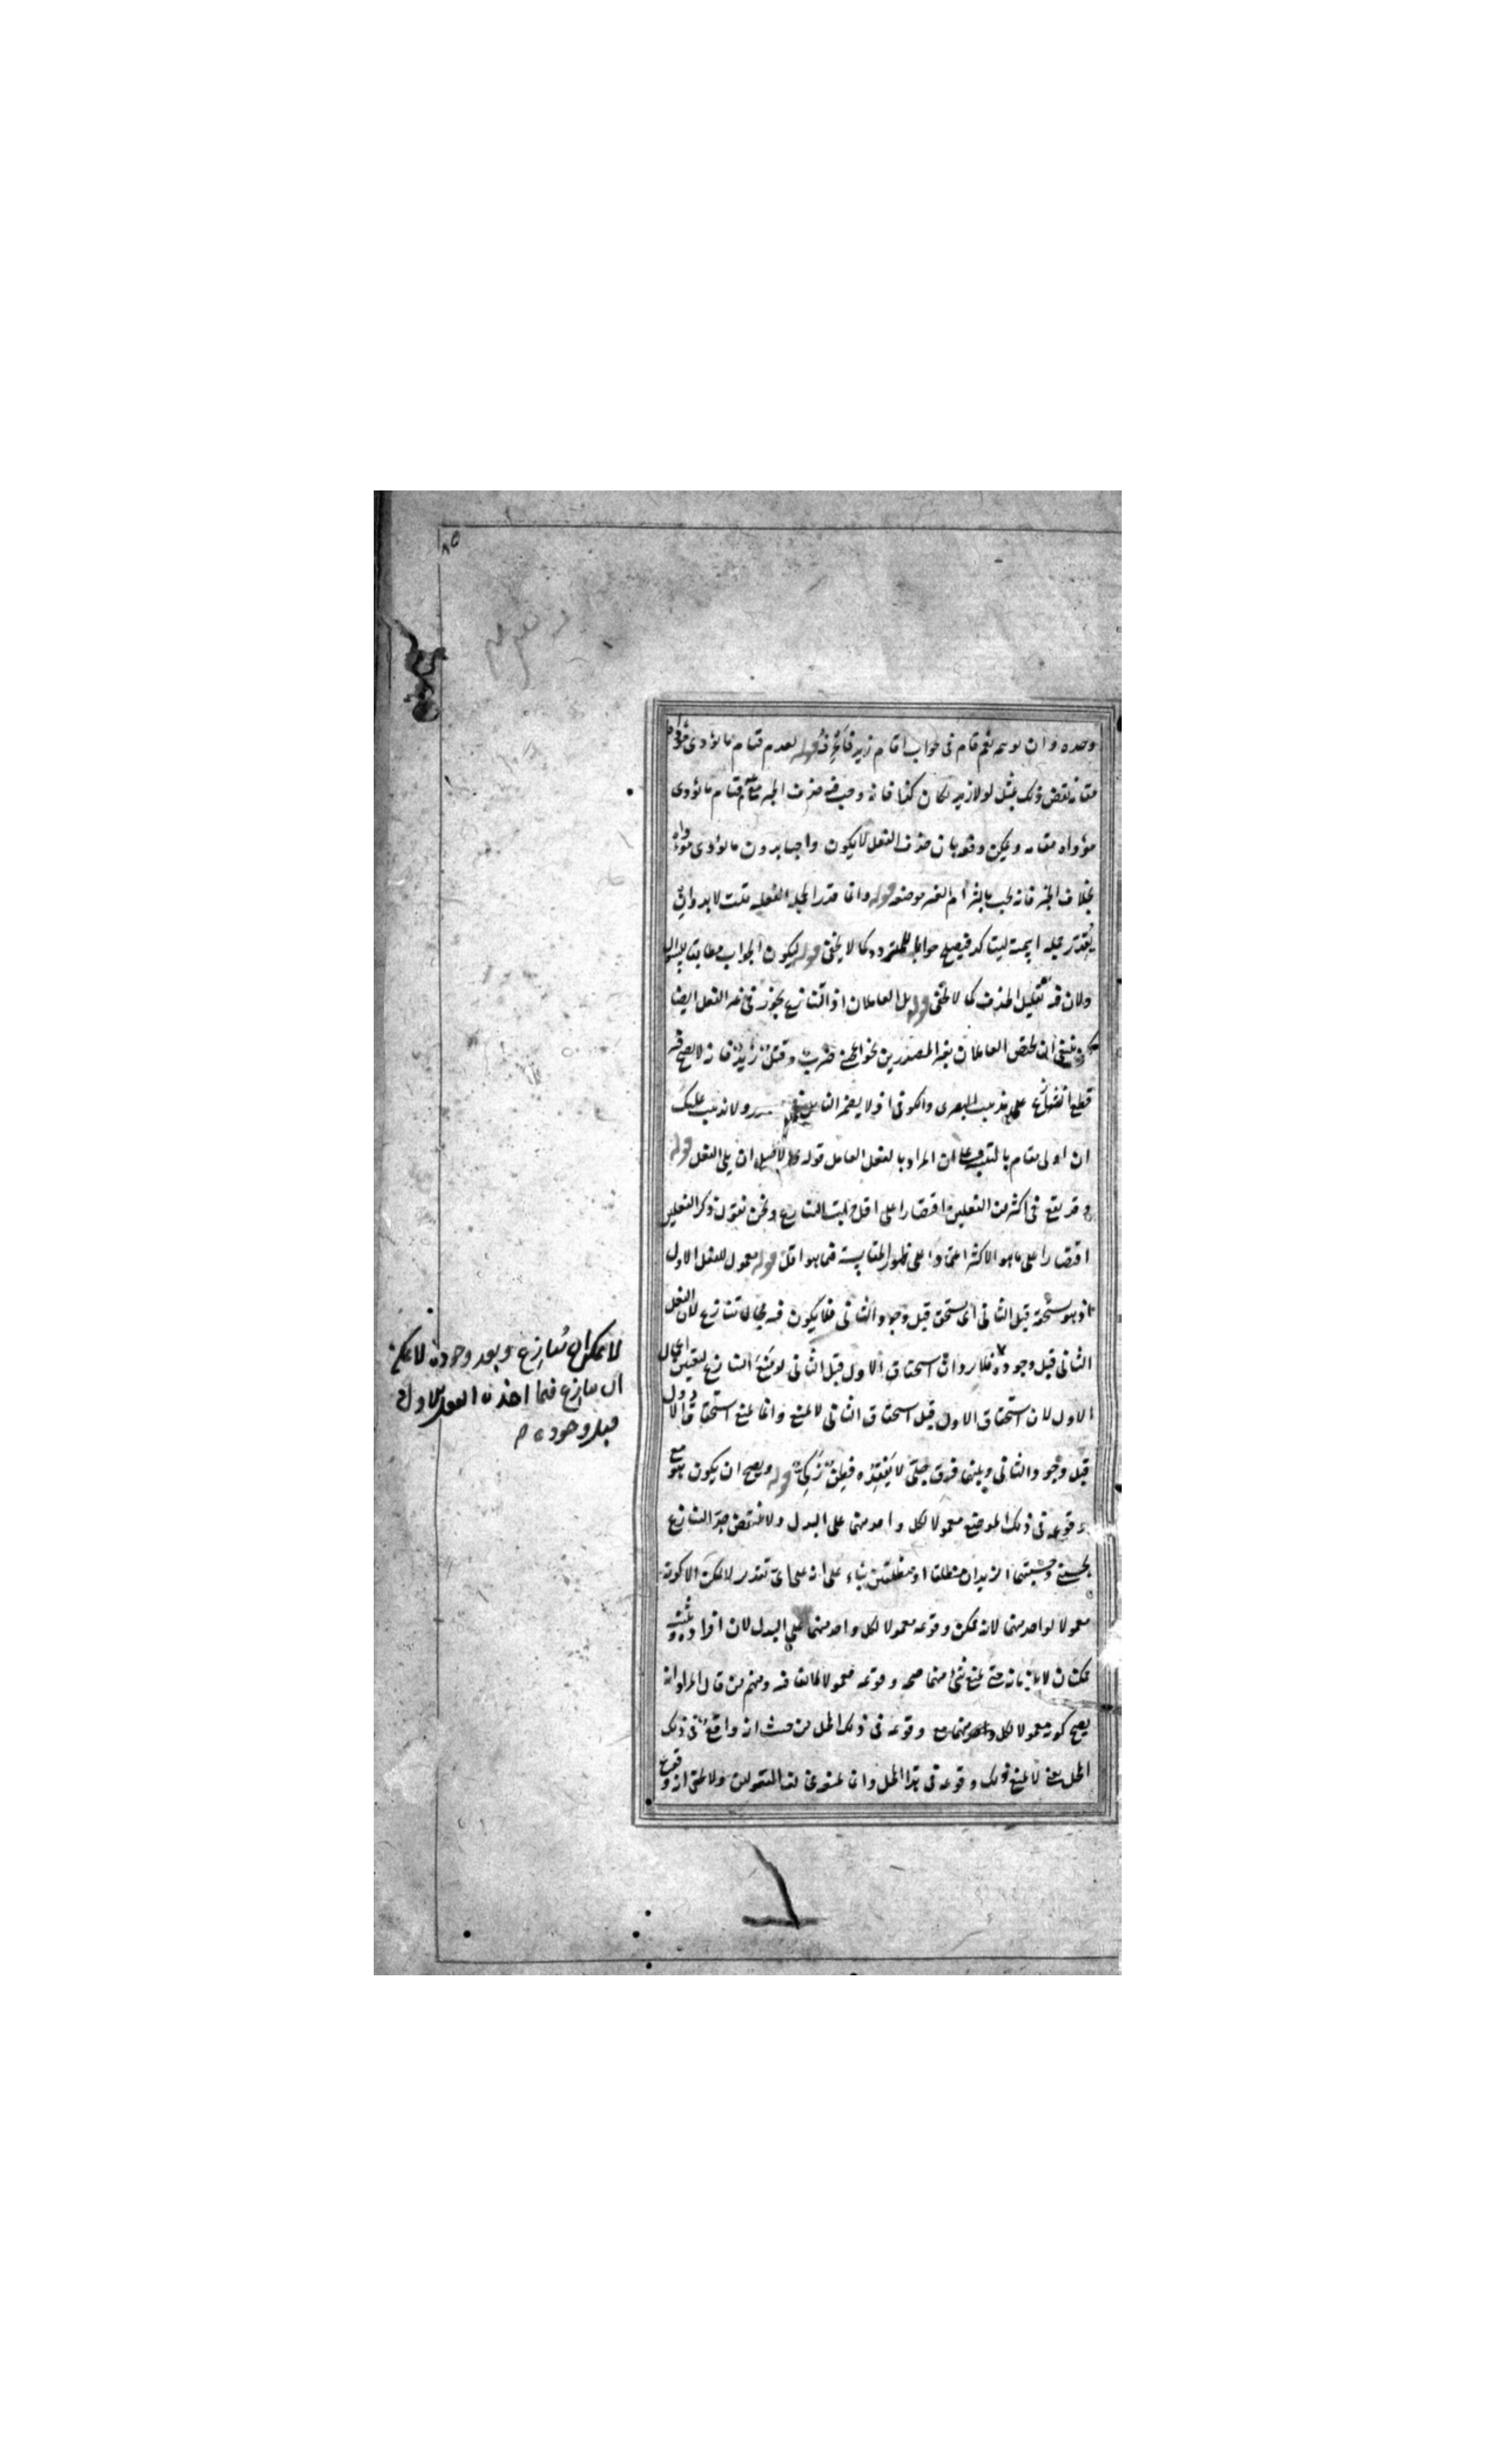 ٨٥
وحده وان لوحظ نعم قام في جواب اقام زيد قائم قوله لعدم قيام ما يؤدى مؤداه
مقامه نقض ذلك بمثل لولا زيد لكان كذا فانه وجب فيه حذف الخبر مع عدم قيام ما يؤدى
مؤداه مقامه ويمكن دفعه بان حذف الفعل لا يكون واجبا بدون ما يؤدى مؤداه
بخلاف الخبر فانه يجب بالتزام الغير موضعه قوله وانما قدر الجملة الفعلية قلت لا بد وان
يقدر جملة اسمية ليتاكد فيصلح جوابا للمتردد كما لا يخفى قوله ليكون الجواب مطابقا للسؤال
ولان فيه تقليل الحذف كما لا يخفى قوله بل العاملان اذ التنازع يجوز في غير الفعل ايضا
لكن ينبغي ان يخص العاملان بغير المصدرين نحو اعجبني ضرب وقتل زيد فانه لا يصح فيه
قطع التنازع على مذهب البصرى والكوفى اذ لا يضمر الفاعل في المصدر ولا يذهب عليك
ان اولى مقام بالتنبيه على ان المراد بالفعل العامل قوله قبيل ان يلي الفعل قوله
وقد يقع في اكثر من الفعلين اقتصارا على اقل مراتب التنازع ونحن نقول ذكر الفعلين
اقتصارا على ما هو الاكثر اعتمادا على ظهور المقايسة فيما هو اقل قوله معمول للفعل الاول
اذ هو يستحقه قبل الثاني اى يستحق قبل وجود الثاني فلا يكون فيه مجال تنازع لان الفعل
الثاني قبل وجوده فلا يرد ان استحقاق الاول قبل الثاني لو منع التنازع لتعين اعمال
الاول لان استحقاق الاول قبل استحقاق الثاني لا يمنع وانما يمنع استحقاق الاول
قبل وجود الثاني وبينهما فرق جلي لا يفقده فطن زكي قوله ويصح ان يكون هو مع
وقوعه في ذلك الموضع معمولا لكل واحد منهما على البدل ولا ينتقض حد التنازع
بحسبني وحسبتهما الزيدان منطلقا او منطلقين بناء على انه على اى تقدير لا يمكن الا كونه
معمولا لواحد منهما لانه يمكن وقوعه معمولا لكل واحد منهما على البدل لان افراده وتثنيته
ممكنان لا يلزمانه حتى يمنع شئ منهما صحة وقوعه معمولا لما لقا فيه ومنهم من قال المراد انه
يصح كونه معمولا لكل واحد منهما مع وقوعه في ذلك المحل من حيث انه واقع في ذلك
المحل يعني لا يمنع ذلك وقوعه في هذا المحل وان لمنوع لفا المقولين ولا يخفى انه وقوع
لا يمكن ان ينازع وبعد وجوده لا يمكن
ان ينازع فيما اخذه الفعل الاول
قبل وجوده م